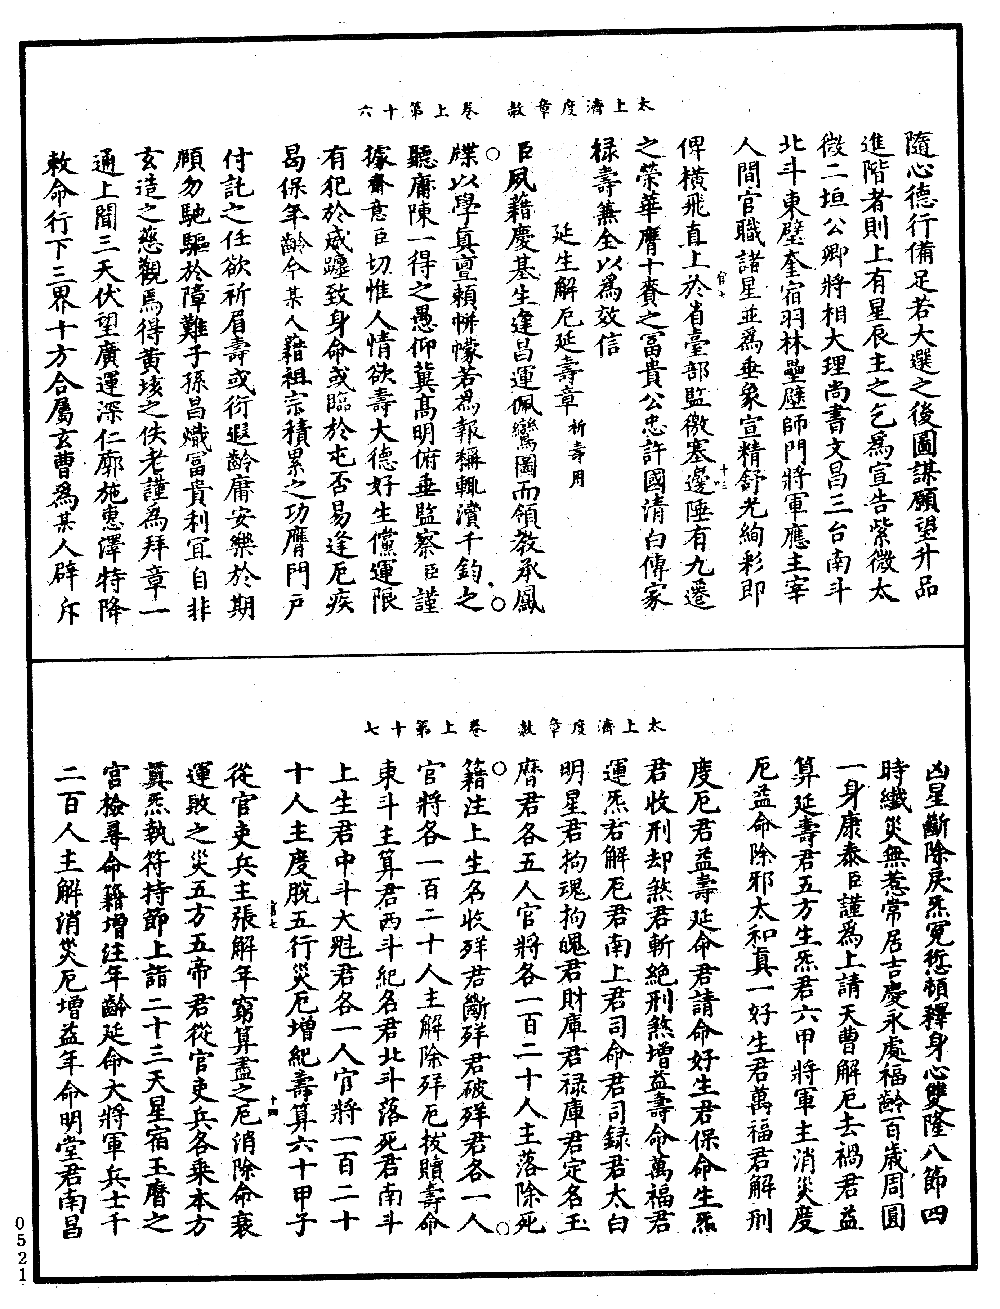 太上濟度章赦　卷上第十六
隨心德行備足若大選之後圖謀願望升品
進階者則上有星辰主之乞為宣告紫微太
微二垣公卿將相大理尚書文昌三台南斗
北斗東壁奎宿羽林壘壁師門將軍應主宰
人間官職諸星並為垂象宣精舒光絢彩即
俾橫飛直上於省臺部監徼塞邊陲有九遷
之榮華膺十賚之富貴公忠許國清白傳家
祿壽兼全以為效信
延生解厄延壽章祈壽用
臣夙藉慶基生逢昌運佩鸞圖而領教承鳳
牒以學真亶賴帡幪若為報稱輒瀆千鈞之
聽庸陳一得之愚仰冀高明俯垂監察臣謹
據齋意臣切惟人情欲壽大德好生儻運限
有犯於
致身命或臨於屯否易逢厄疾
曷保年齡今某人藉祖宗積累之功膺門戶
付託之任欲祈眉壽或衍遐齡庸安樂於期
頤勿馳驅於障難子孫昌熾富貴利宜自非
玄造之慈觀焉得黃垓之佚老謹為拜章一
通上聞三天伏望廣運深仁廓施惠澤特降
敕命行下三界十方合屬玄曹為某人辟斥
太上濟度章赦　卷上第十七
凶星斷除戾炁冤愆頓釋身心雙隆八節四
時纖災無惹常居吉慶永處福齡百歲周圓
一身康泰臣謹為上請天曹解厄去禍君益
算延壽君五方生炁君六甲將軍主消災度
厄益命除邪太和真一好生君萬福君解刑
度厄君益壽延命君請命好生君保命生炁
君收刑却煞君斬絕刑煞增益壽命萬福君
運炁君解厄君南上君司命君司錄君太白
明星君拘魂拘魄君財庫君祿庫君定名玉
曆君各五人官將各一百二十人主落除死
籍注上生名收殃君斷殃君破殃君各一人
官將各一百二十人主解除殃厄拔贖壽命
東斗主算君西斗紀名君北斗落死君南斗
上生君中斗大魁君各一人官將一百二十
十人主度脫五行災厄增紀壽算六十甲子
從官吏兵主張解年窮算盡之厄消除命衰
運敗之災五方五帝君從官吏兵各乘本方
真炁執符持節上詣二十三天星宿玉曆之
宮檢尋命籍增注年齡延命大將軍兵士千
二百人主解消災厄增益年命明堂君南昌
0521